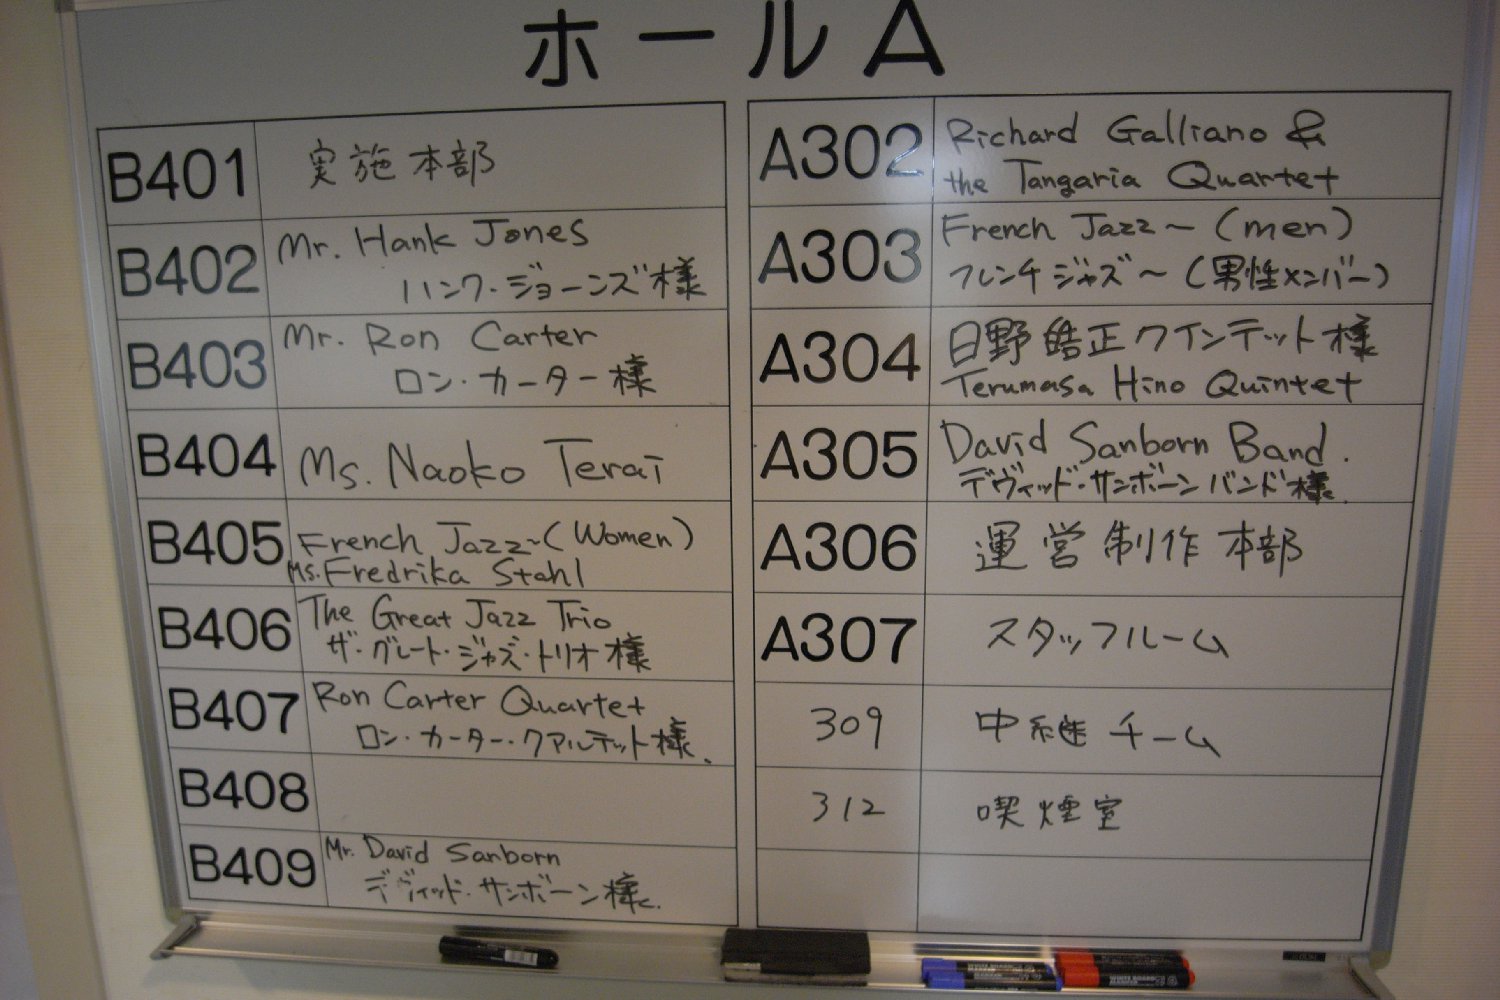 ホールA
B401 実施本部
B402 Mr. Hank Jones
ハンク・ジョーンズ様
B403 Mr. Ron Carter
ロン・カーター様
B404 Ms. Naoko Terai
B405 French Jazz~(Women)
Ms. Fredrika Stahl
B406 The Great Jazz Trio
ザ・グレート・ジャズ・トリオ様
B407 Ron Carter Quartet
ロン・カーター・クアルテット様.
B408
B409 Mr. David Sanborn
デヴィッド・サンボーン様.
A302 Richard Galliano &
the Tangaria Quartet
A303 French Jazz~(men)
フレンチジャズ~(男性メンバー)
A304 日野皓正クインテット様
Terumasa Hino Quintet
A305 David Sanborn Band.
デヴィッド・サンボーンバンド様.
A306 運営制作本部
A307 スタッフルーム
309 中継チーム
312 喫煙室